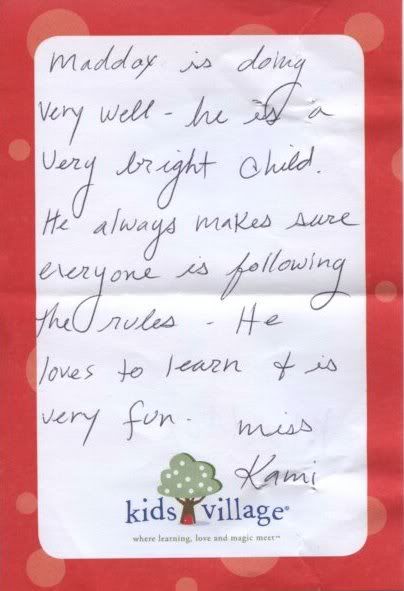 Maddox is doing
very well - he is a
very bright child.
He always makes sure
everyone is following
the rules - He
loves to learn & is
very fun. miss
Kami
kids village®
where learning, love and magic meet™